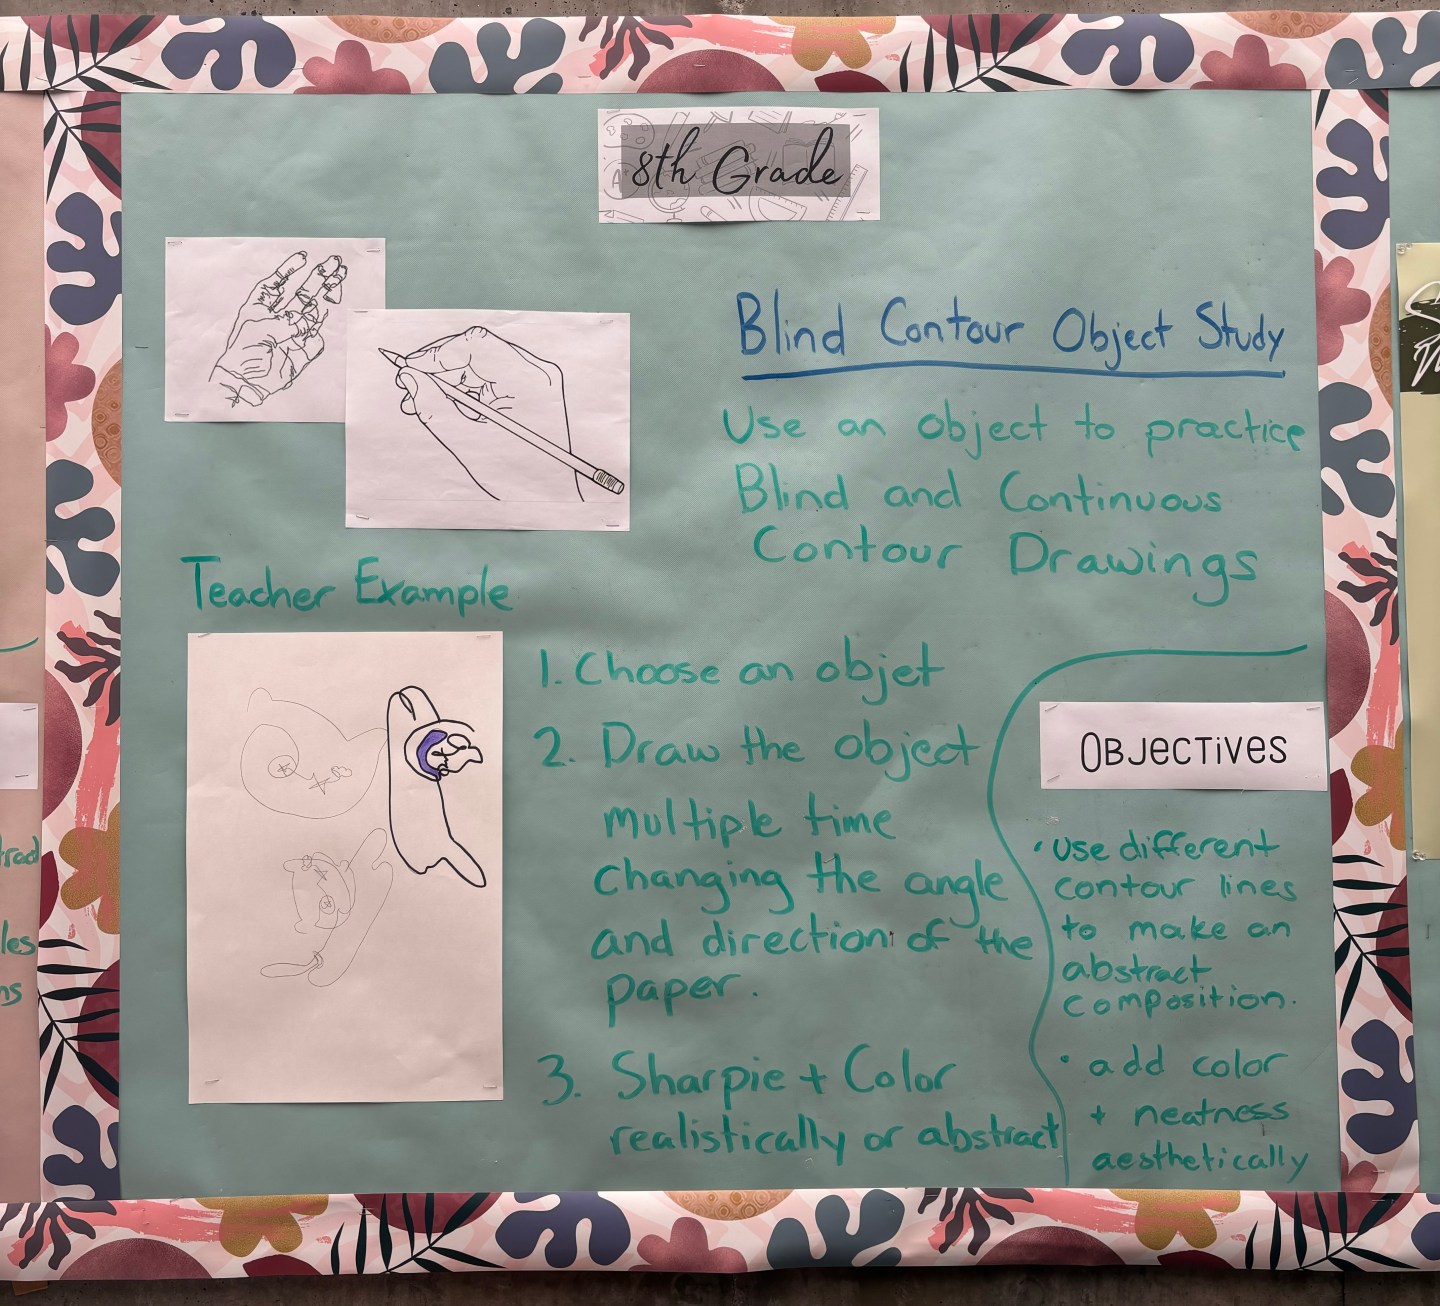 8th Grade
Blind Contour Object Study
Use an object to practice
Blind and Continuous
Contour Drawings
Teacher Example
1. Choose an objet
2. Draw the object
multiple time
changing the angle
and direction of the
paper.
3. Sharpie + Color
realistically or abstract
OBJECTIVES
• use different
contour lines
to make an
abstract
composition.
• add color
+ neatness
aesthetically
les
ns